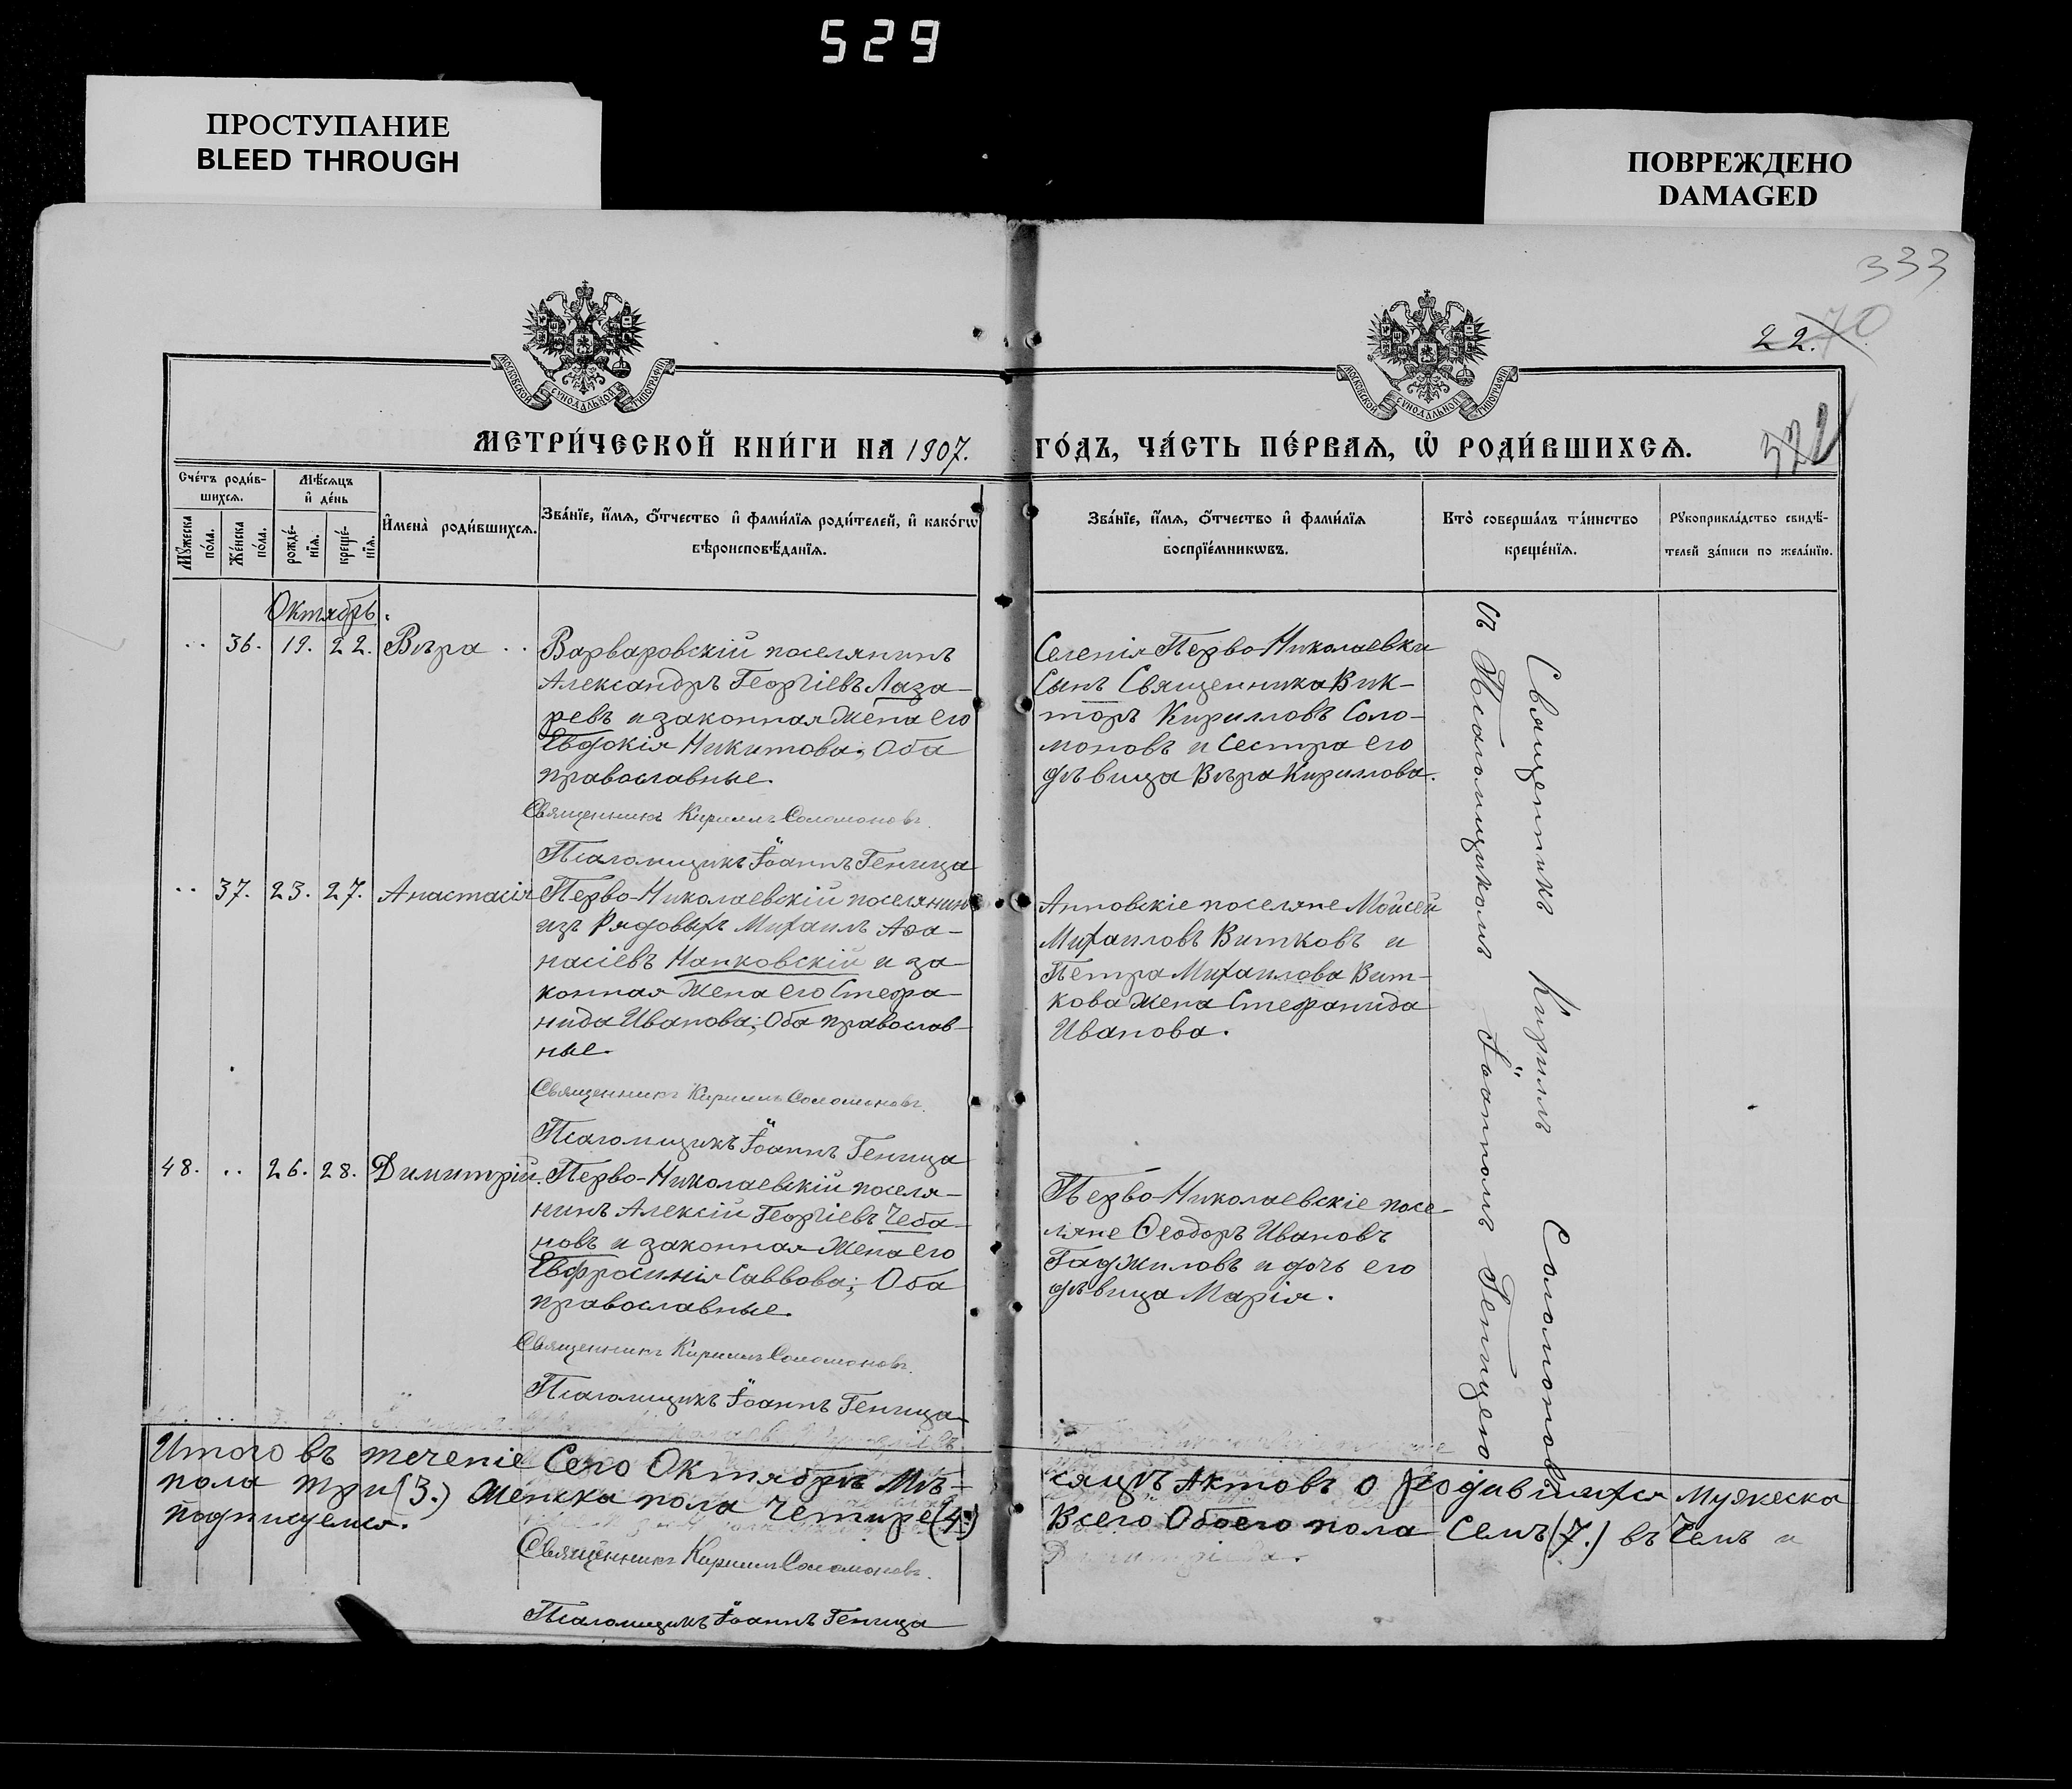 529
ПРОСТУПАНИЕ
BLEED THROUGH
ПОВРЕЖДЕНО
DAMAGED
333
22.
70
322
МОСКОВСКОЙ СУНОДАЛЬНОЙ ТИПОГРАФІИ
МОСКОВСКОЙ СУНОДАЛЬНОЙ ТИПОГРАФІИ
МЕТРИ́ЧЕСКОЙ КНИ́ГИ НА 1907.
ГО́ДЪ, ЧА́СТЬ ПЕ́РВАѦ, Ѡ҆ РОДИ́ВШИХСѦ.
Сче́тъ роди́в-
шихсѧ.
Мꙋ́жеска
по́ла.
Же́нска
по́ла.
Мѣ́сѧцъ
и҆ де́нь
рожде́-
нїѧ.
креще́-
нїѧ.
И҆мена̀ роди́вшихсѧ.
Зва́нїе, и҆́мѧ, ѻ҆́тчество и҆ фами́лїѧ роди́телей, и҆ како́гѡ
вѣроисповѣ́данїѧ.
Зва́нїе, и҆́мѧ, ѻ҆́тчество и҆ фами́лїѧ
воспрїе́мникѡвъ.
Кто̀ соверша́лъ та́инство
креще́нїѧ.
Рꙋкоприкла́дство свидѣ́-
телей за́писи по жела́нїю.
Октябрь.
.. 36. 19. 22. Вѣра ..
Варваровскій поселянинъ
Александръ Георгіевъ Лаза-
ревъ и законная жена его
Евдокія Никитова; Оба
православные.
Священникъ Кириллъ Соломоновъ.
Псаломщикъ Іоаннъ Геница
Селенія Перво-Николаевки
Сынъ Священника Вик-
торъ Кирилловъ Соло-
моновъ и Сестра его
дѣвица Вѣра Кириллова.
.. 37. 23. 27. Анастасія
Перво-Николаевскій поселянинъ
изъ Рядовыхъ Михаилъ Аѳа-
насіевъ Напковскій и за-
конная жена его Стефа-
нида Иванова; Оба православ-
ные.
Священникъ Кириллъ Соломоновъ.
Псаломщикъ Іоаннъ Геница
Анновскіе поселяне Мойсей
Михаиловъ Витковъ и
Петра Михаилова Вит-
кова жена Стефанида
Иванова.
48. .. 26. 28. Димитрій.
Перво-Николаевскій поселя-
нинъ Алексій Георгіевъ Чеба-
новъ и законная жена его
Евфросинія Саввова; Оба
православные.
Священникъ Кириллъ Соломоновъ.
Псаломщикъ Іоаннъ Геница
Перво-Николаевскіе посе-
ляне Ѳеодоръ Ивановъ
Гаджиловъ и дочь его
дѣвица Марія.
Священникъ Кириллъ Соломоновъ
съ Псаломщикомъ Іоанномъ Геницею
Итого въ теченіе Сего Октябрь Мѣ-
сяцъ Актовъ о родившихся Мужеска
пола три (3.) Женска пола Четыре (4.)
Всего Обоего пола Семъ (7.) въ Чемъ и
подписуемся.
Священникъ Кириллъ Соломоновъ.
Псаломщикъ Іоаннъ Геница